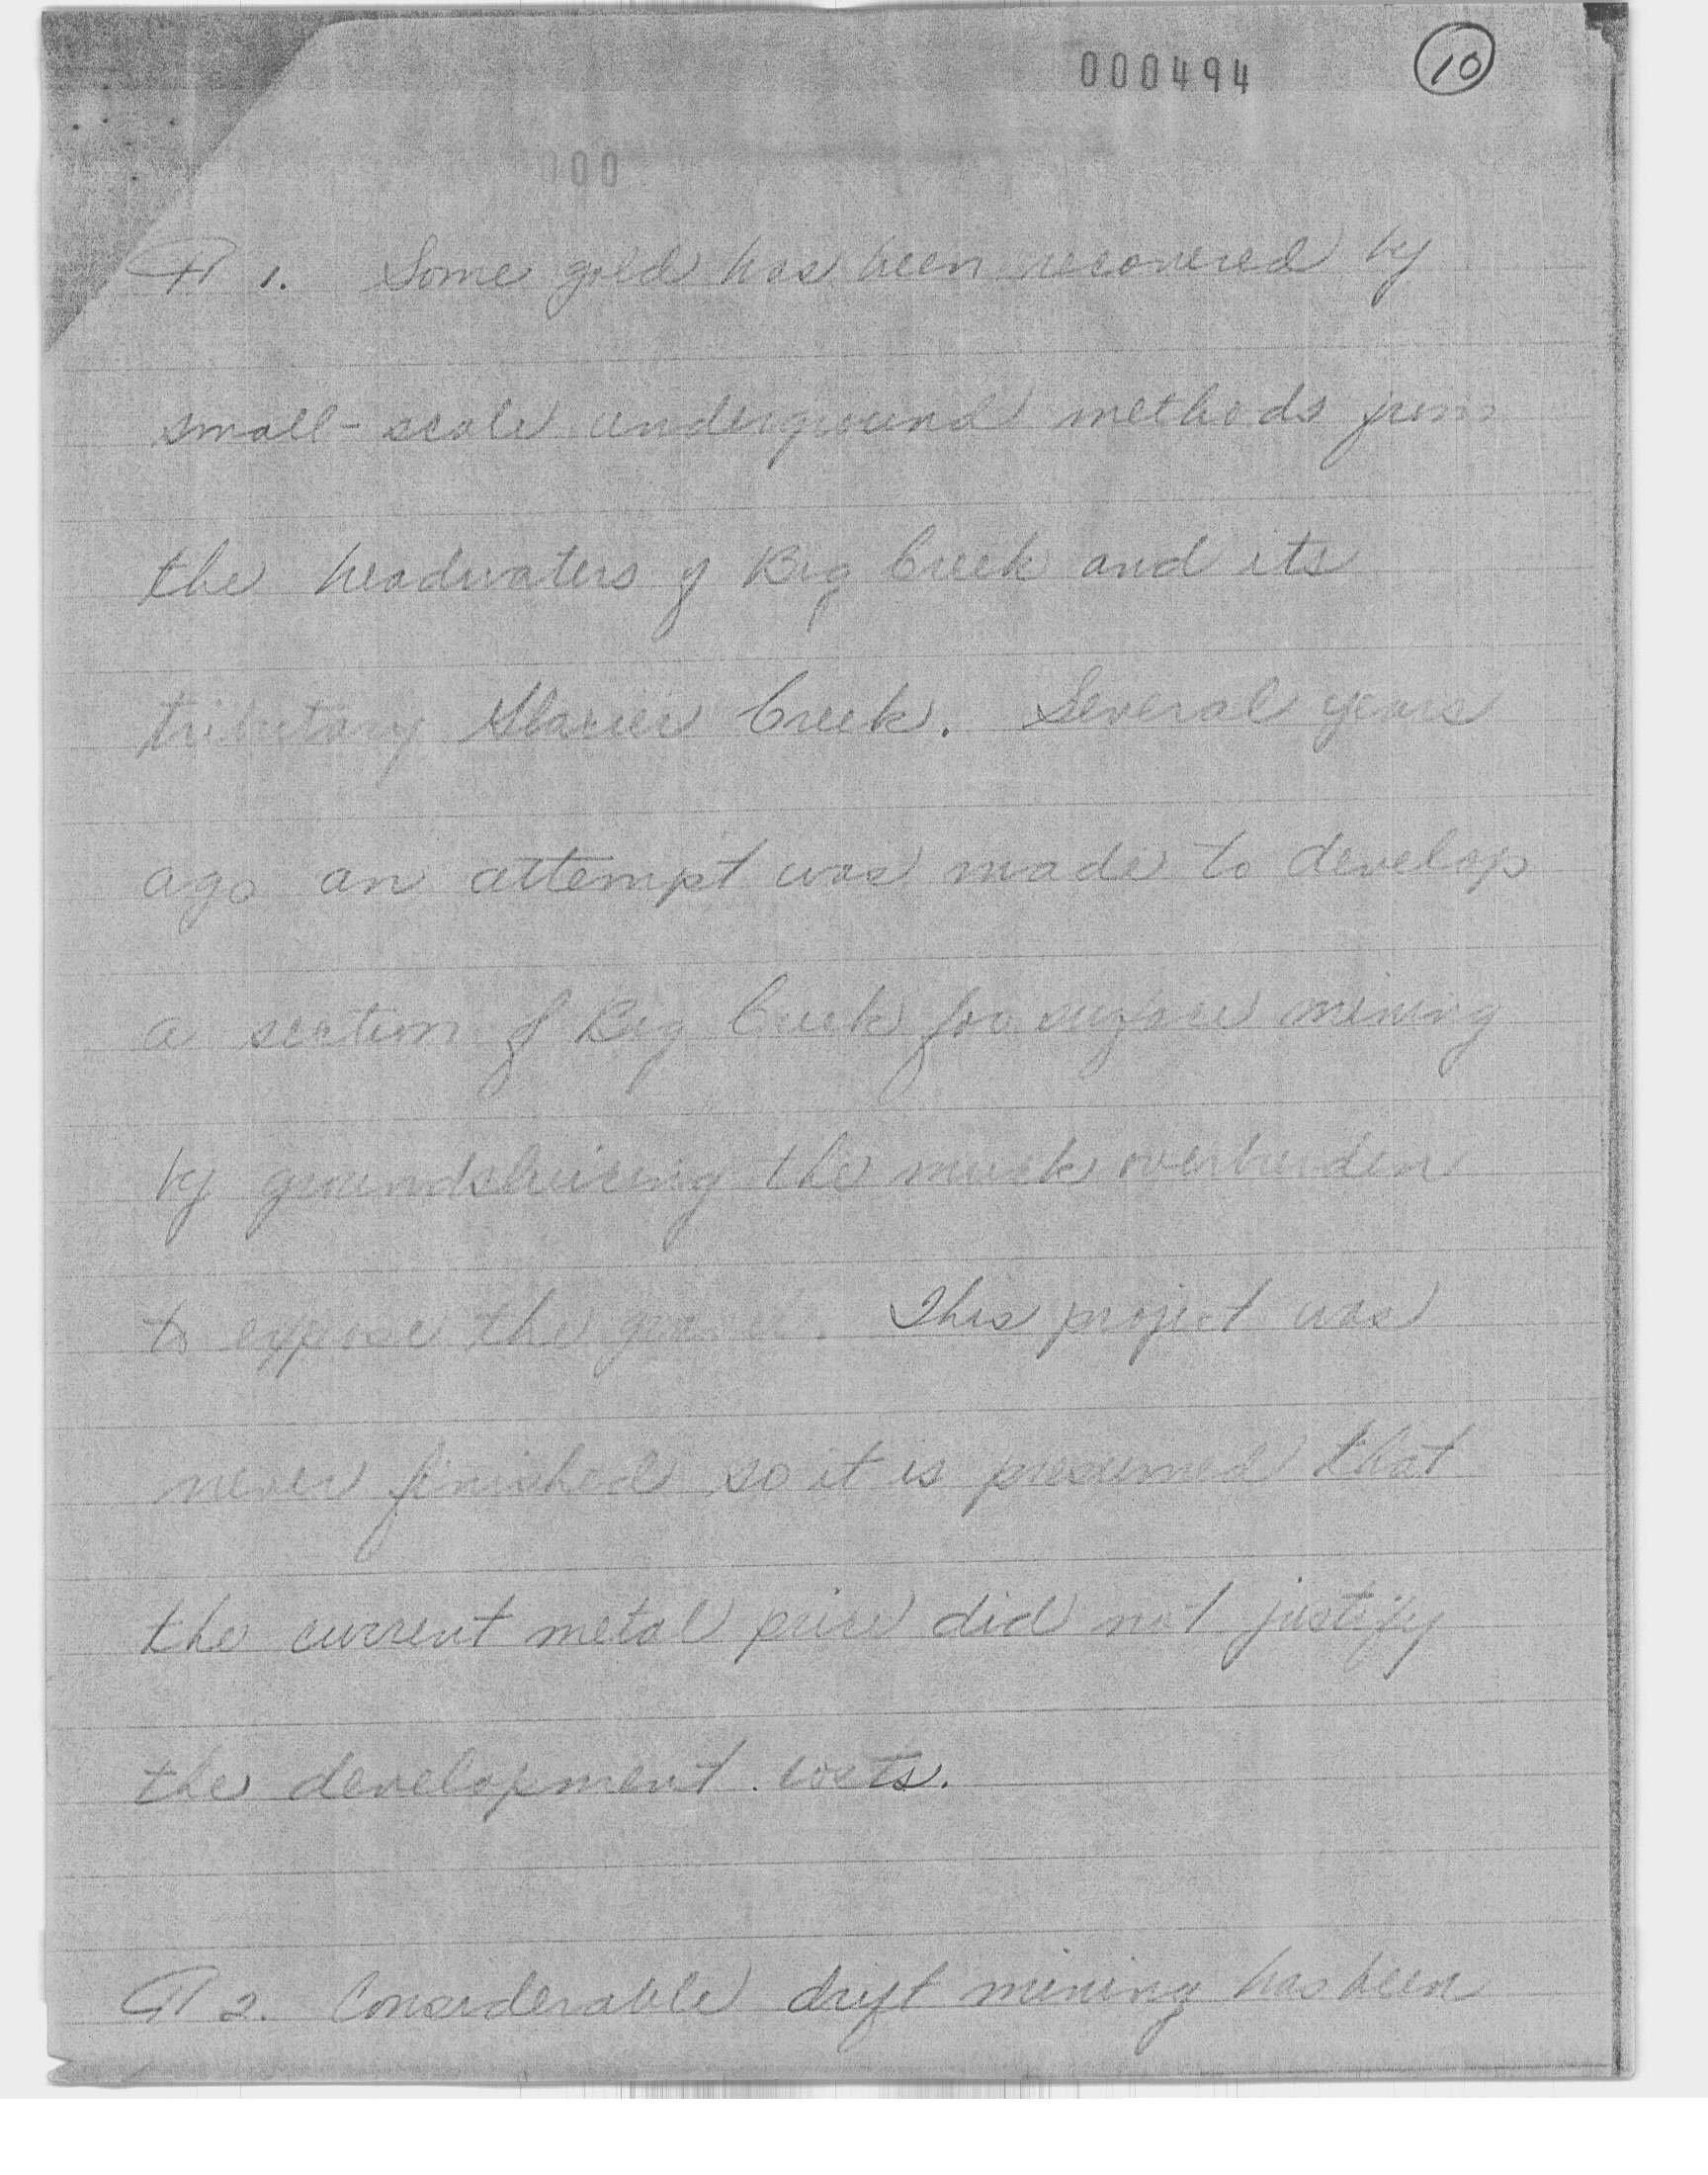 000494 10
000
¶ 1. Some gold has been recovered by
small-scale underground methods from
the headwaters of Big Creek and its
tributary Glacier Creek. Several years
ago an attempt was made to develop
a section of Big Creek for surface mining
by groundsluicing the muck overburden
to expose the gravels. This project was
never finished so it is presumed that
the current metal price did not justify
the development costs.
¶ 2. Considerable drift mining has been